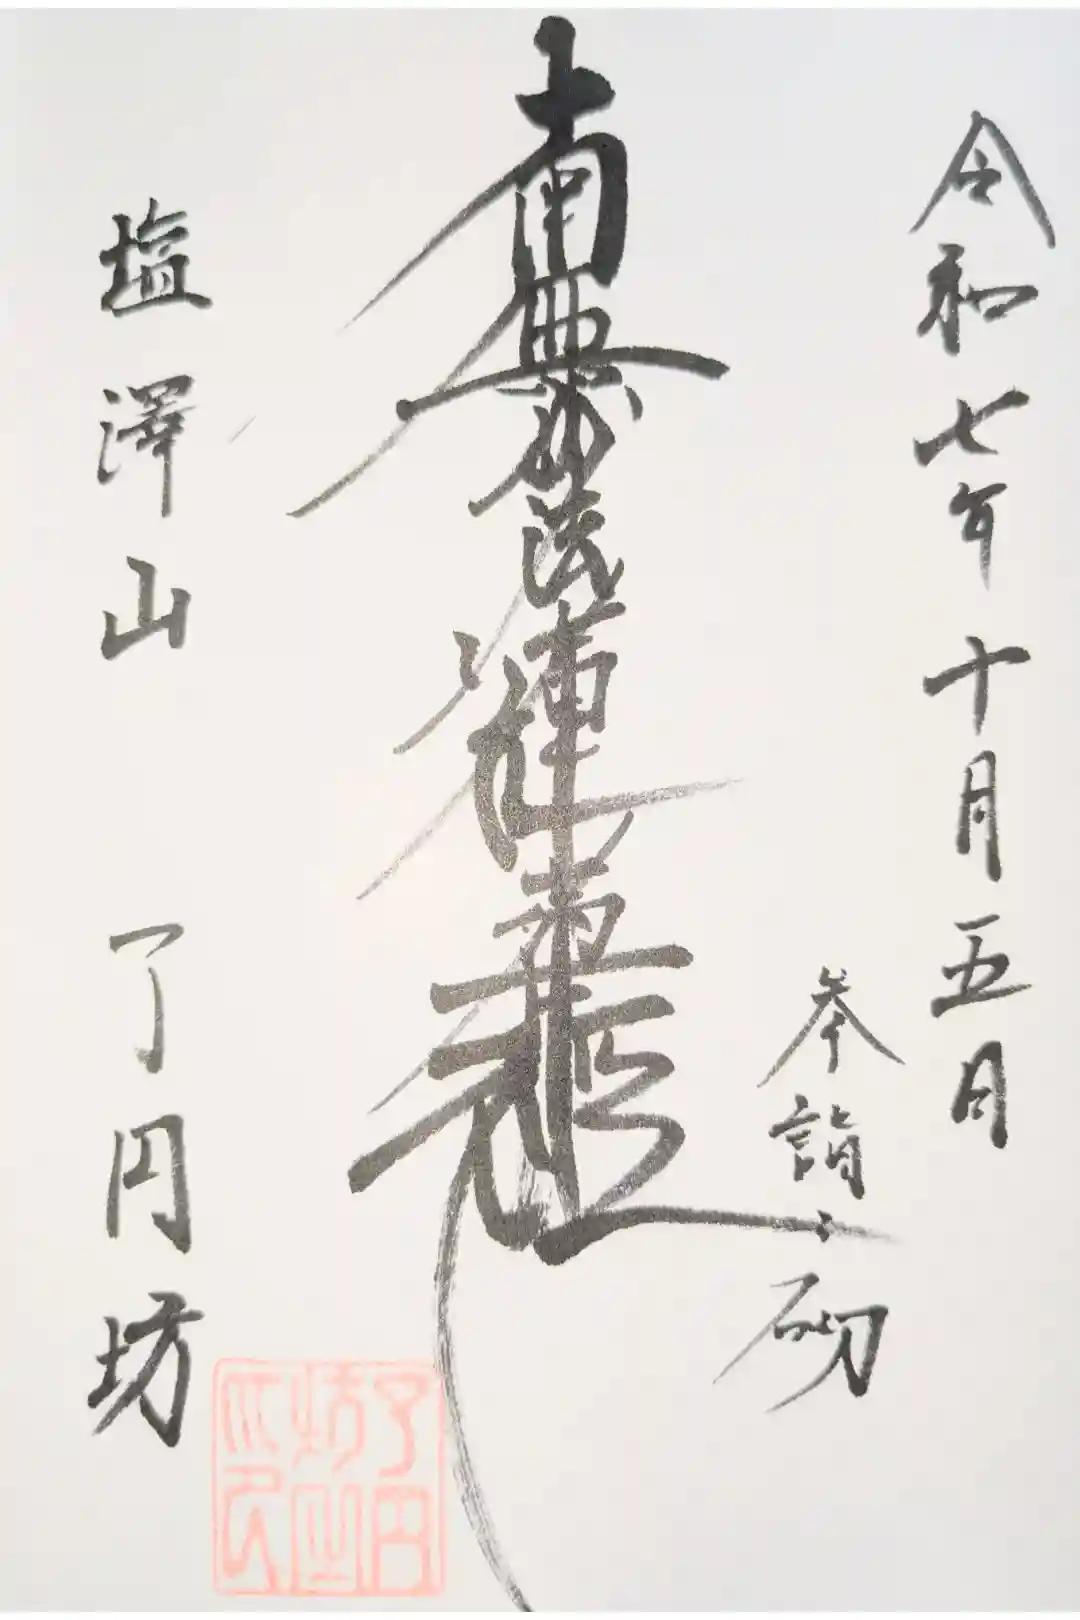 令和七年十月五日
参詣之砌
南無妙法蓮華経
塩澤山 了円坊
了円
坊之
印